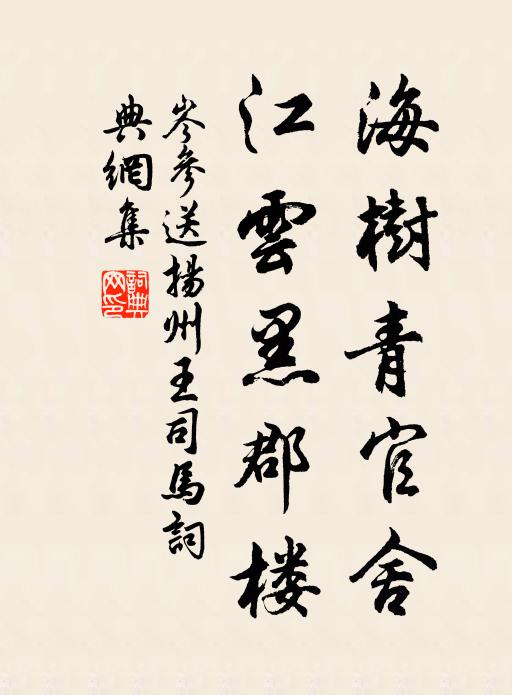 海樹青官舍
江雲黑郡楼
岑參送揚州王司馬詞
典網集
詞典網印